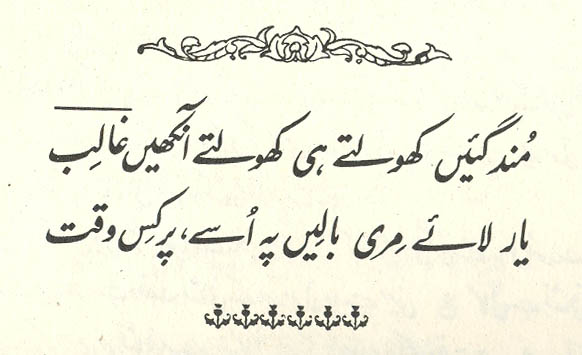 مُند گئیں کھولتے ہی کھولتے آنکھیں غالِب
یار لائے مِری بالِیں پہ اُسے، پر کِس وقت